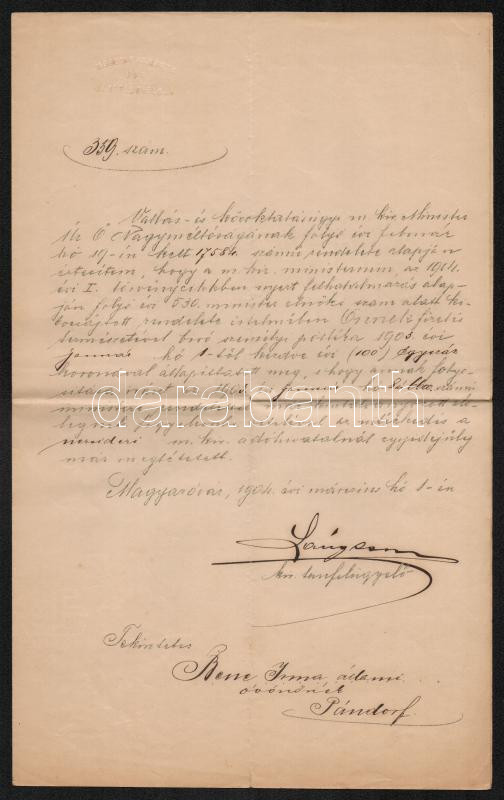 359. szám.
Vallás- és közoktatásügyi m. kir. Minister
Úr Ő Nagyméltóságának folyó évi február
hó 19-én kelt 17584. számú rendelete alapján
értesítem, hogy a m. kir. ministerium az 1904.
évi I. törvénycikkben nyert felhatalmazás alap-
ján folyó évi 530. minister elnöki szám alatt ki-
bocsájtott rendelete értelmében Önnek fizetés
természetével biró személyi pótléka 1903. évi
január hó 1-től kezdve évi (100) Egyszáz
koronával állapíttatott meg, s hogy annak folyó-
a
nezsideri m. kir. adóhivatalnál egyidejűleg
már megtétetett.
Magyaróvár, 1904. évi márczius hó 1-én
kir. tanfelügyelő
Tekintetes
Bene Irma állami
óvónőnek
Pándorf.
darabanth